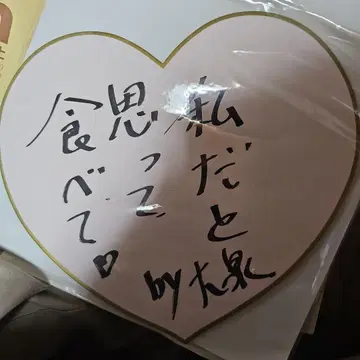 私だと
思って、
食べて♡
by大泉